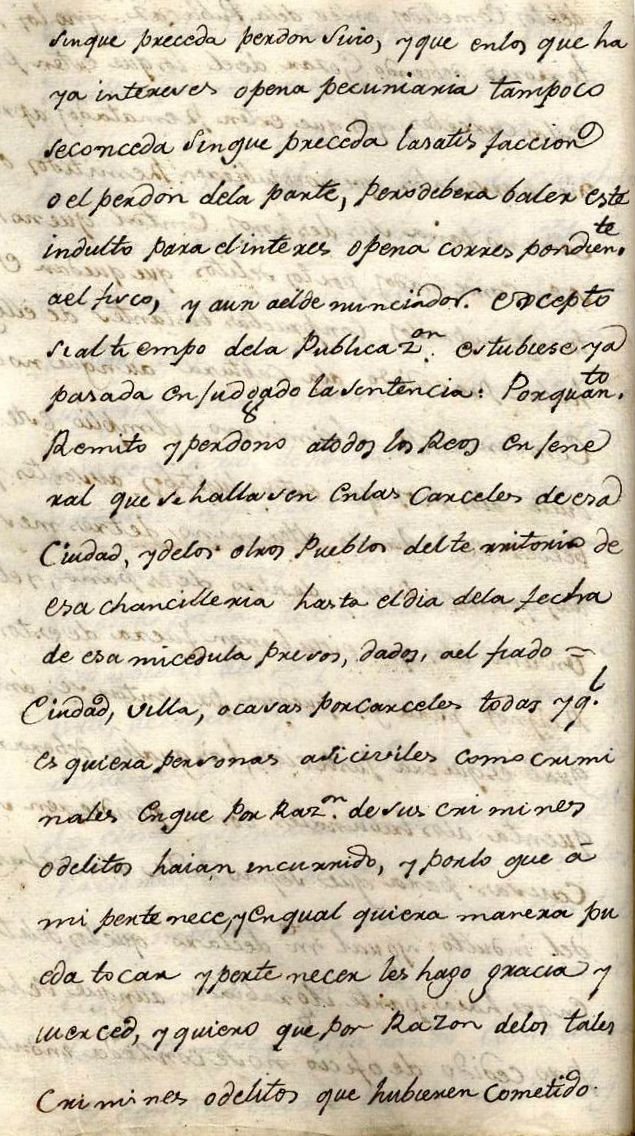 sinque preceda perdon suio, y que enlos que ha
ya intereses opena pecuniaria tampoco
seconceda sinque preceda lasatis faccion
o el perdon dela parte, perodebera baler este
indulto para elinteres opena corres pondien.te
ael fisco, y aun aelde nunciador. excepto
sial ti empo dela Publicaz.on estubiese ya
pasada en Judgado la sentencia: Porquan.to
Remito y perdono atodos los Reos en Jene
ral que se hallasen enlas Carceles de esa
Ciudad, ydelos otros Pueblos delte rritorio de
esa chancilleria hasta eldia dela fecha
de esa micedula presos, dados, ael fiado =
Ciudad, villa, ocasas porcarceles todas yq.l
es quiera personas asiciviles comocrimi
nales enque por Raz.on de sus crimines
odelitos haian incurrido, y porlo que á
mi perte nece, yenqual quiera manera pu
eda tocar yperte necer les hago gracia y
merced, y quiero que por Razon delos tales
Crimines odelitos que hubieren Cometido.